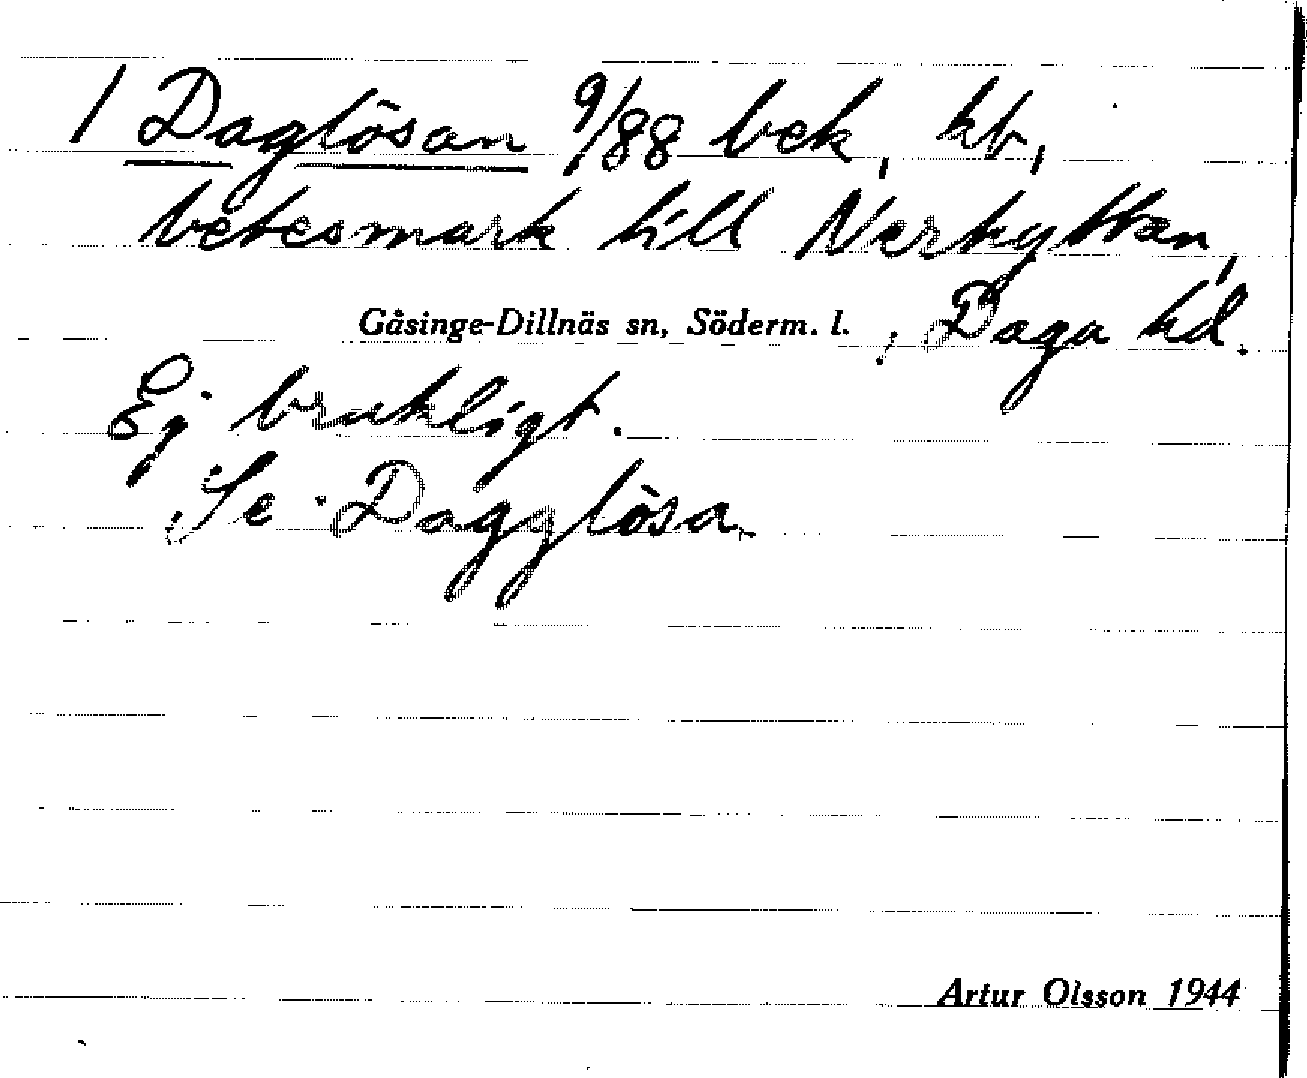 / Daglösan 9/88 bek, kb,
betesmark till Nerhyttan,
Gåsinge-Dillnäs sn, Söderm. l. , Daga hd.
Ej brukligt.
Se Dagglösa
Artur Olsson 1944